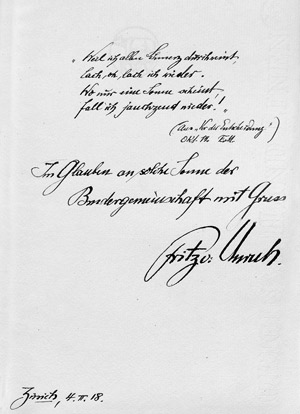 „Weil ich allen Schmerz durchweint,
lach, oh, lach ich wieder.
Wo nur eine Sonne scheint,
fall ich jauchzend nieder!"
(Aus „Vor der Entscheidung"
Okt. 14.
Im Glauben an solche Sonne der
Brudergemeinschaft mit Gruss
Fritz v. Unruh.
Zürich, 4. II. 18.